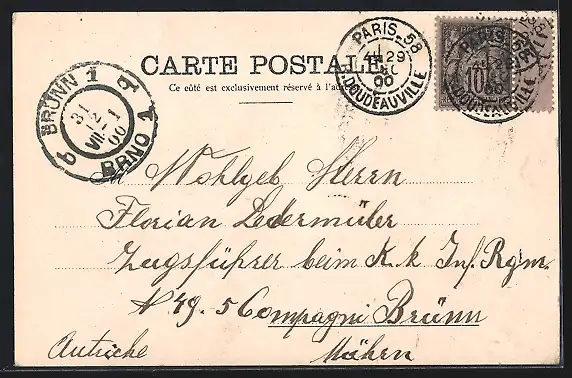 PARIS-58
29
00
DOUDEAUVILLE
10
CARTE POSTALE
Ce côté est exclusivement réservé à l'adresse
BRÜNN 1
31
VII
00
BRNO 1
Wohlgeb Herrn
Florian Ledermüller
Zugsführer beim K. k Inf. Rgm.
№ 49. 5 Compagni Brünn
Autriche Mähren